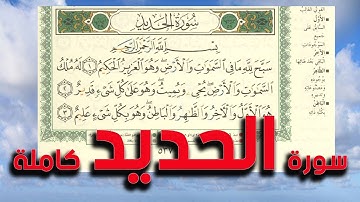 سُورَةُ الحَدِيدِ
بِسْمِ اللَّهِ الرَّحْمَٰنِ الرَّحِيمِ
سَبَّحَ لِلَّهِ مَا فِي السَّمَٰوَٰتِ وَالْأَرْضِ وَهُوَ الْعَزِيزُ الْحَكِيمُ ١ لَهُ مُلْكُ
السَّمَٰوَٰتِ وَالْأَرْضِ يُحْيِي وَيُمِيتُ وَهُوَ عَلَىٰ كُلِّ شَيْءٍ قَدِيرٌ ٢
هُوَ الْأَوَّلُ وَالْآخِرُ وَالظَّاهِرُ وَالْبَاطِنُ وَهُوَ بِكُلِّ شَيْءٍ عَلِيمٌ ٣
سورة الحديد كاملة
٥٣٧